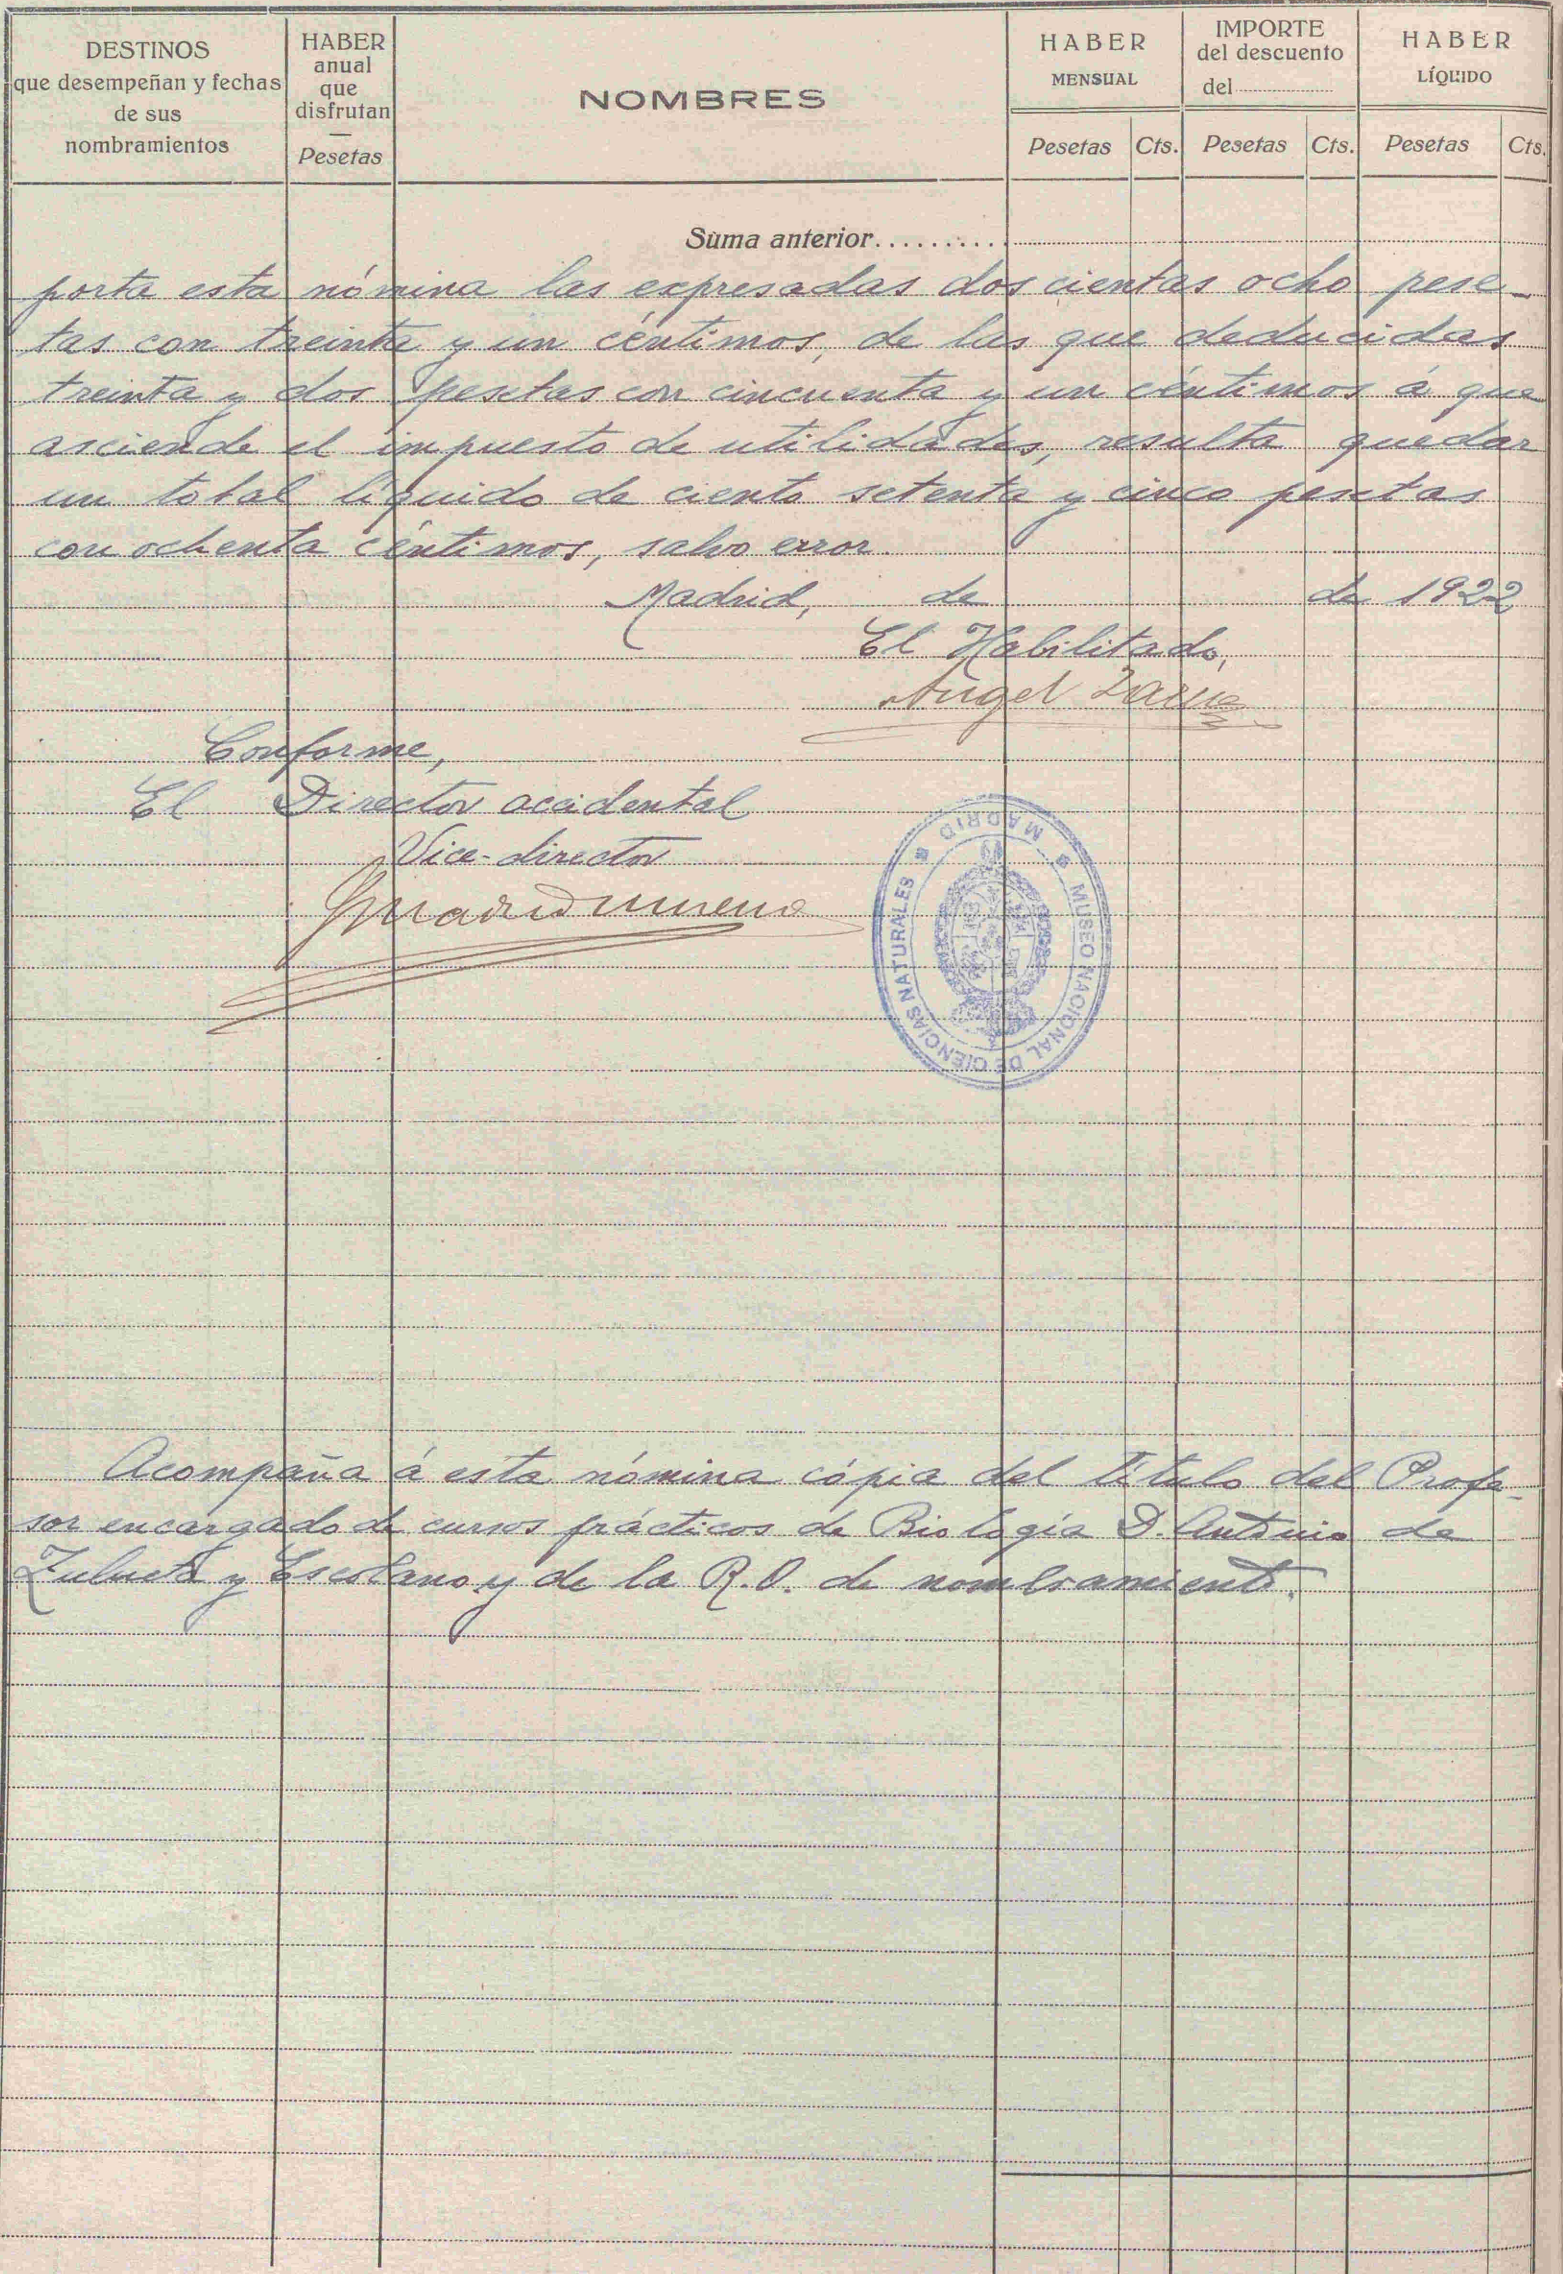 DESTINOS
que desempeñan y fechas
de sus
nombramientos
HABER
anual
que
disfrutan
Pesetas
NOMBRES
HABER
MENSUAL
Pesetas Cts.
IMPORTE
del descuento
del
Pesetas Cts.
HABER
LÍQUIDO
Pesetas Cts.
Suma anterior..........
porta esta nómina las expresadas dos cientas ocho pese-
tas con treinta y un céntimos, de las que deducidas
treinta y dos pesetas con cincuenta y un céntimos á que
asciende el impuesto de utilidades, resulta quedar
un total líquido de ciento setenta y cinco pesetas
con ochenta céntimos, salvo error.
Madrid, de de 1922
El Habilitado,
Angel
Conforme,
El Director accidental
Vice-director
MADRID
MUSEO NACIONAL DE CIENCIAS NATURALES
Acompaña á esta nómina cópia del título del Profe-
sor encargado de cursos prácticos de Biología D. Antonio de
Zulueta y Escolano y de la R.O. de nombramiento.